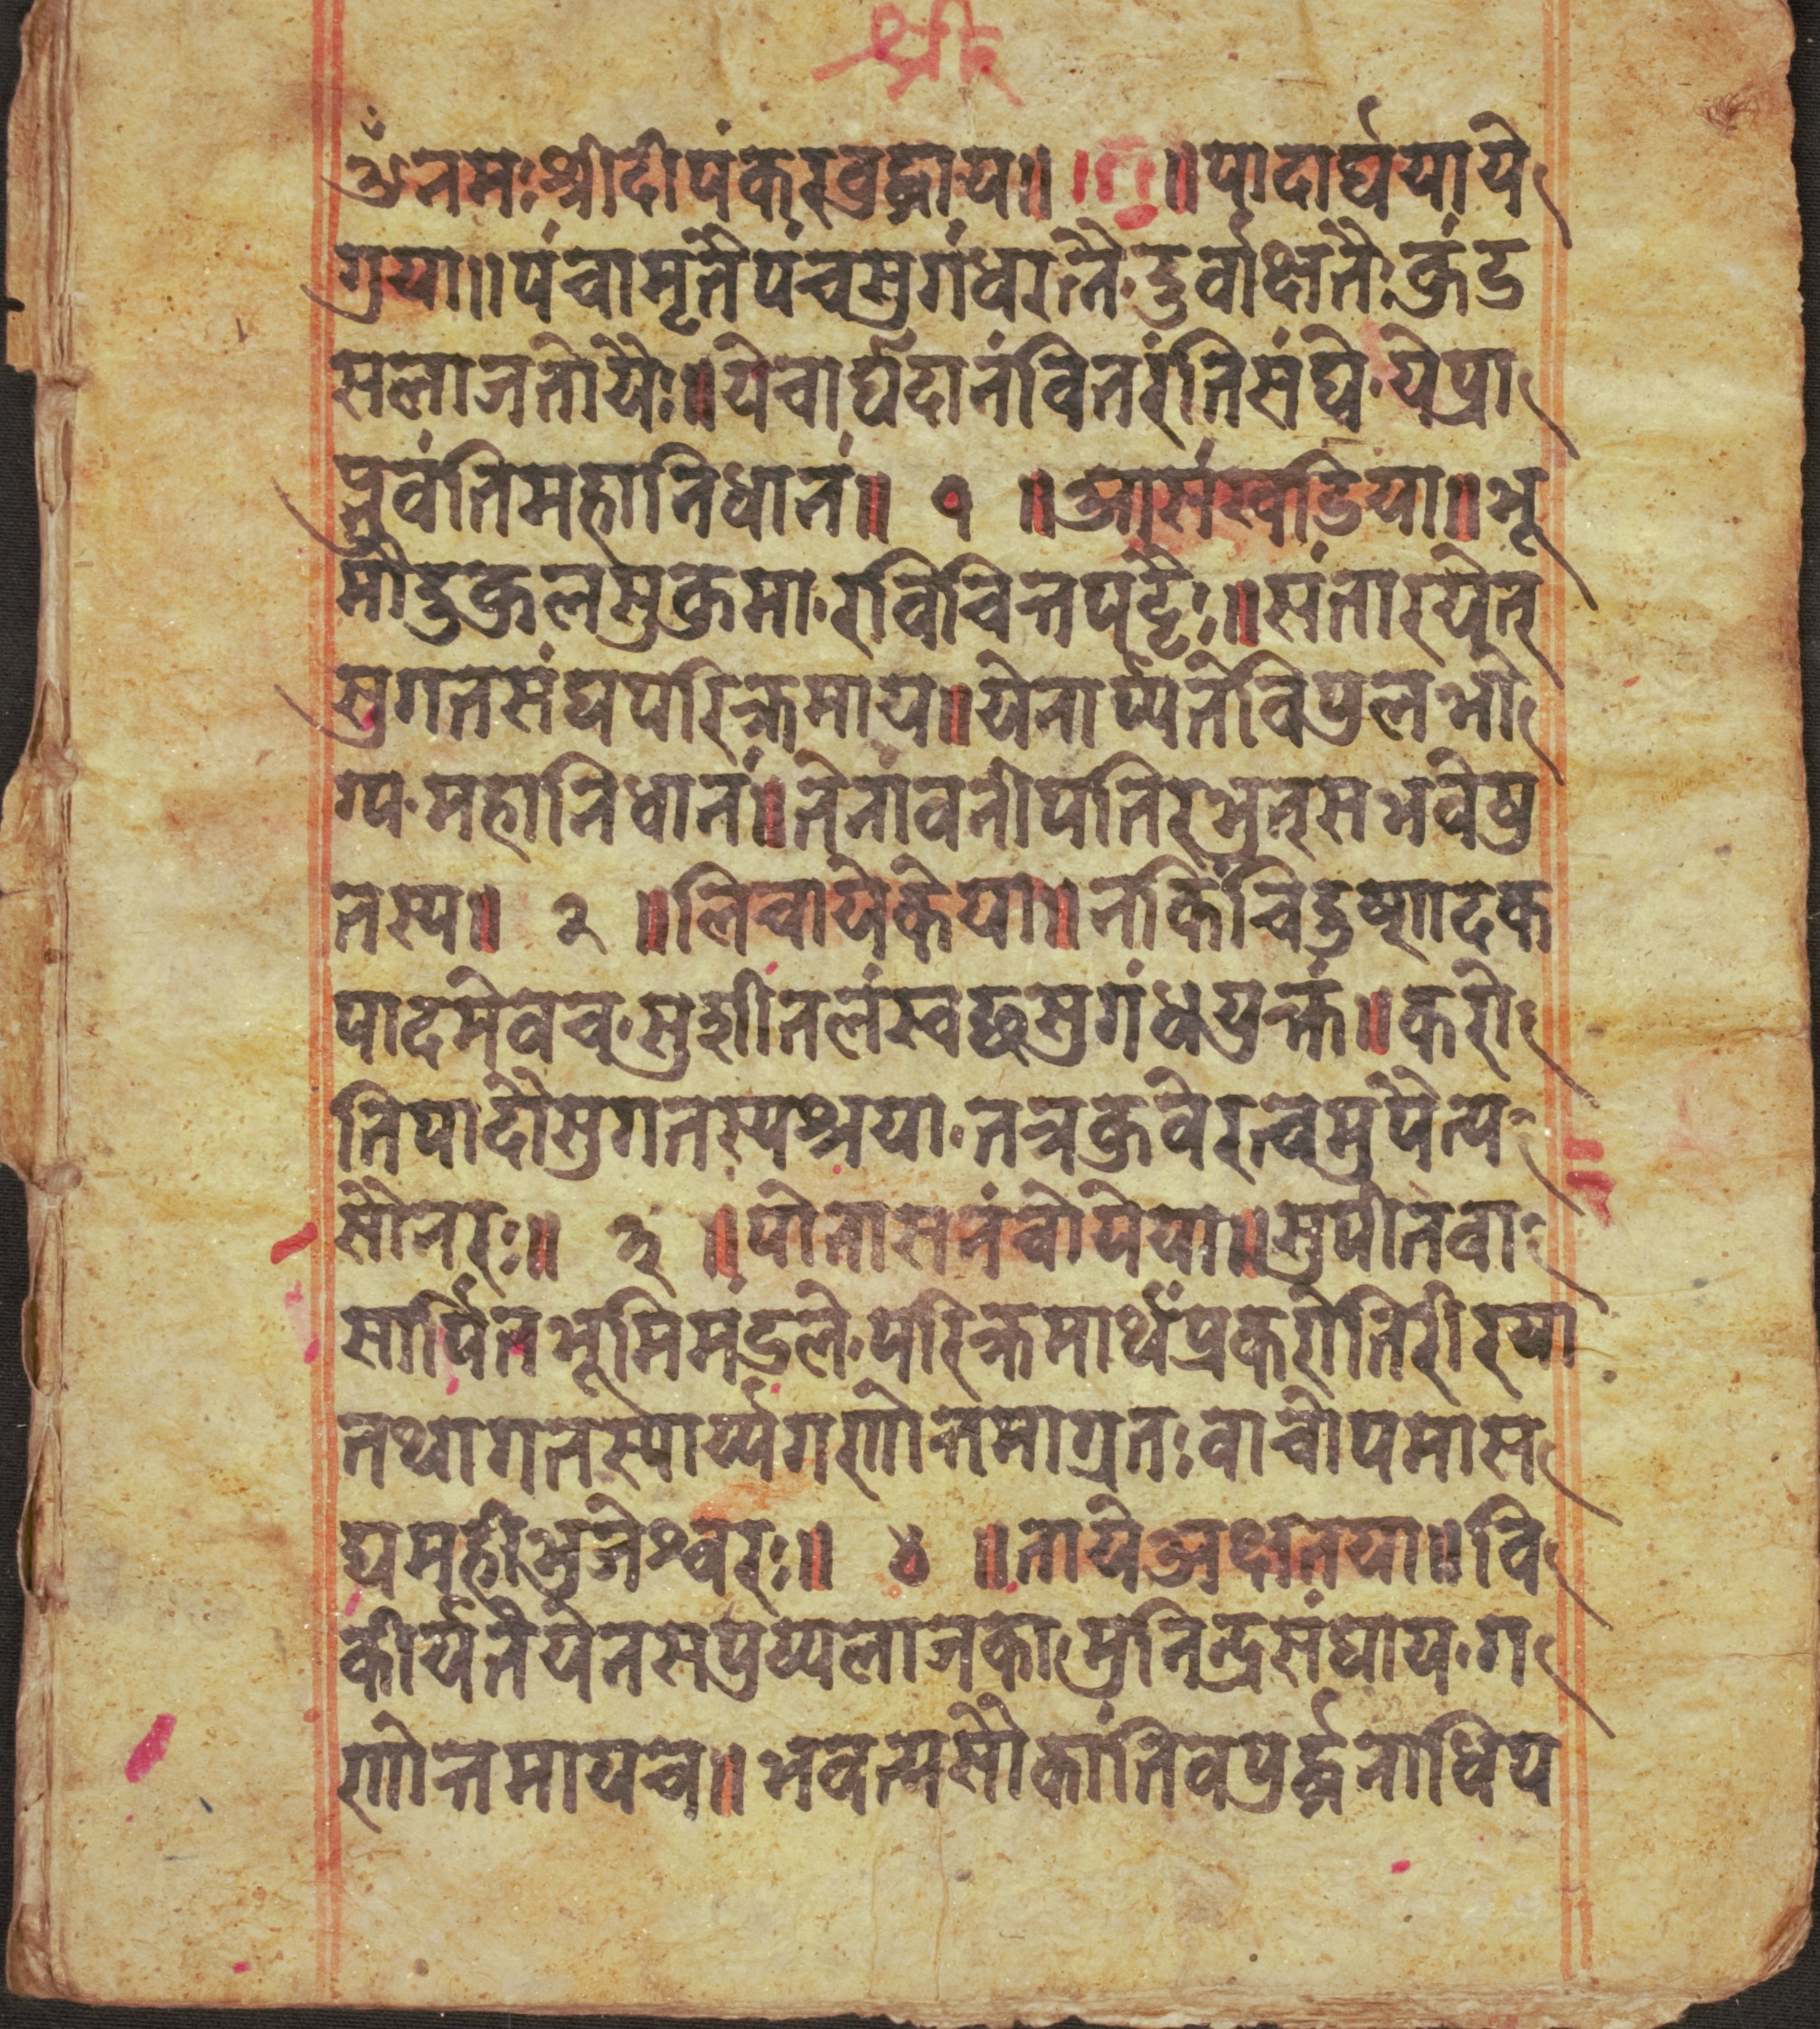 श्री
ॐ नमः श्रीदीपंकरवुद्धाय॥ ॥ ॥ पादार्घयाये
गुया॥ पंचामृतै पंचसुगंधरत्नै दुर्वाक्षतैः कुंडु
सलाजतोयैः॥ येचार्घदानं वितरंति संघे येप्रा
प्नुवंति महानिधानं॥ १ ॥ आसंखडिया॥ भू
मौदुकुलसुकुमारविचित्तपट्टैः॥ संतारयेत्
सुगतसंघपरिक्रमाय॥ येनार्प्यते विपुलभो
ग्य महानिधानं॥ तेनावनीपतिरभुत्स भवेषु
तस्य॥ २ ॥ लिचायेकेया॥ नकिंचिदुष्णादक
पादमेवच सुशीतलं स्वछसुगंधयुक्तं॥ करो
तिपादौ सुगतस्यश्रया तत्रकुवेरत्वमुपैत्य
सौनरः॥ ३ ॥ पोतासनंवोयेया॥ सुपीतवा
सार्पितभूमिमंडले परिक्रमार्थं प्रकरोतिरीरया
तथागतस्यार्य्यगणोत्तमाग्रतः वाचोपमास
द्यमहीभुजेश्वरः॥ ४ ॥ तायेअक्षतया॥ वि
कीर्यतेयेनसपुष्पलाजका मुनिन्द्रसंघाय ग
णोत्तमायच॥ भवत्यसौकांतिवपुर्द्धनाधिप